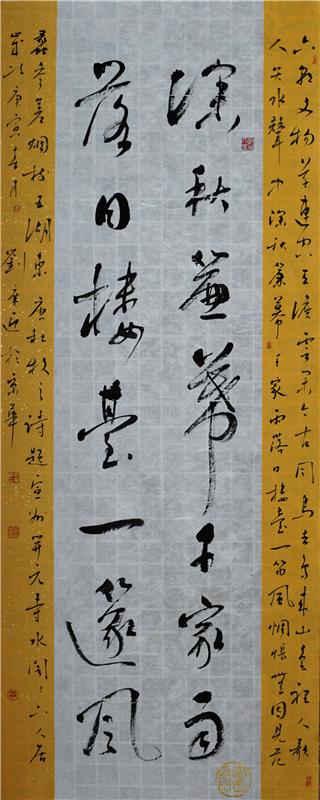 六朝文物草連空天澹雲閑今古同鳥去鳥來山色裡人歌
人哭水聲中深秋簾幕千家雨落日樓臺一笛風惆悵無因見范
深秋簾幕千家雨
落日樓臺一篴風
蠡參差烟樹五湖東唐杜牧之詩題宣州開元寺水閣人居
歲次庚寅春月劉於京華